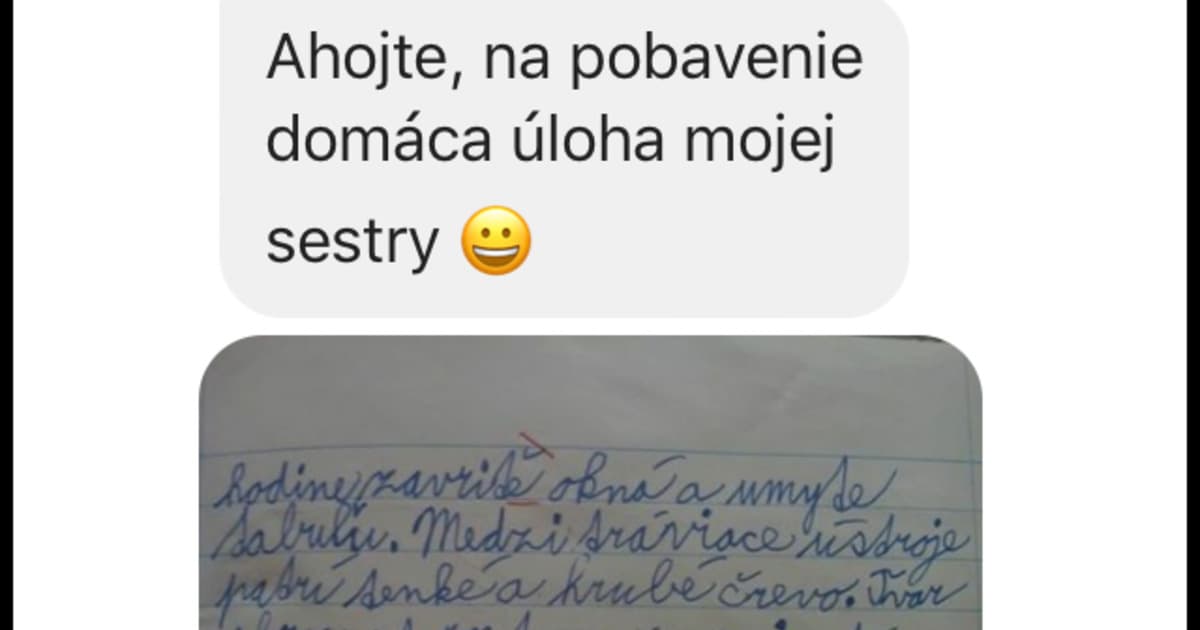 Ahojte, na pobavenie
domáca úloha mojej
sestry 😀
hodine zavrite okná a umyte
tabuľu. Medzi tráviace ústroje
patrí tenké a hrubé črevo. Tvar